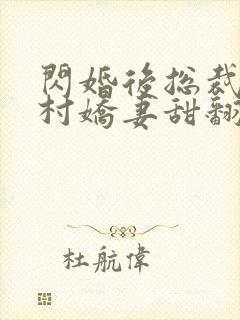 閃婚後總裁
村嬌妻甜翻
杜航偉